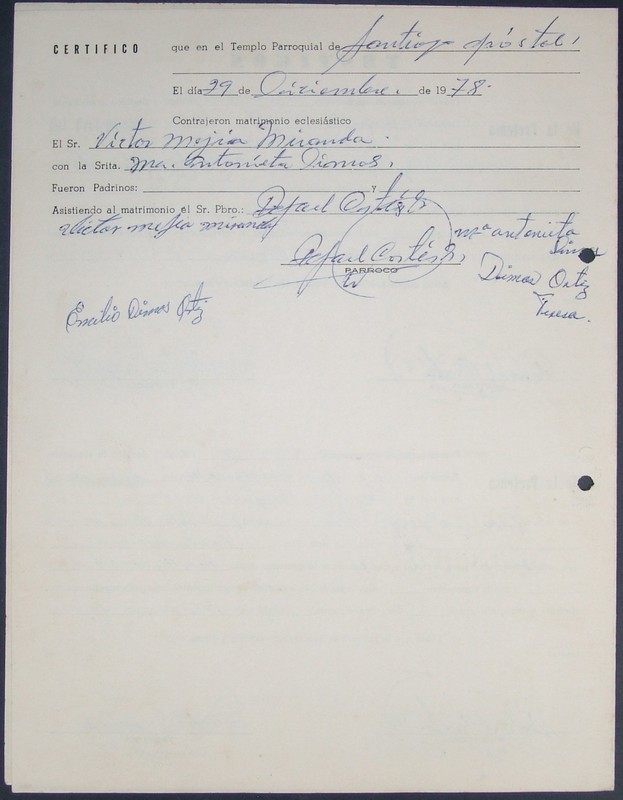 CERTIFICO que en el Templo Parroquial de Santiago Apóstol,
El día 29 de Diciembre. de 1978.
Contrajeron matrimonio eclesiástico
El Sr. Víctor Mejía Miranda.
con la Srita. Ma. Antonieta Dimas.
Fueron Padrinos: y
Asistiendo al matrimonio el Sr. Pbro.: Rafael Cortés
Victor mejia miranda
Ma antonieta
Rafael Cortés
PARROCO
Dimas Ortiz
Teresa.
Emilio Dimas Ortiz